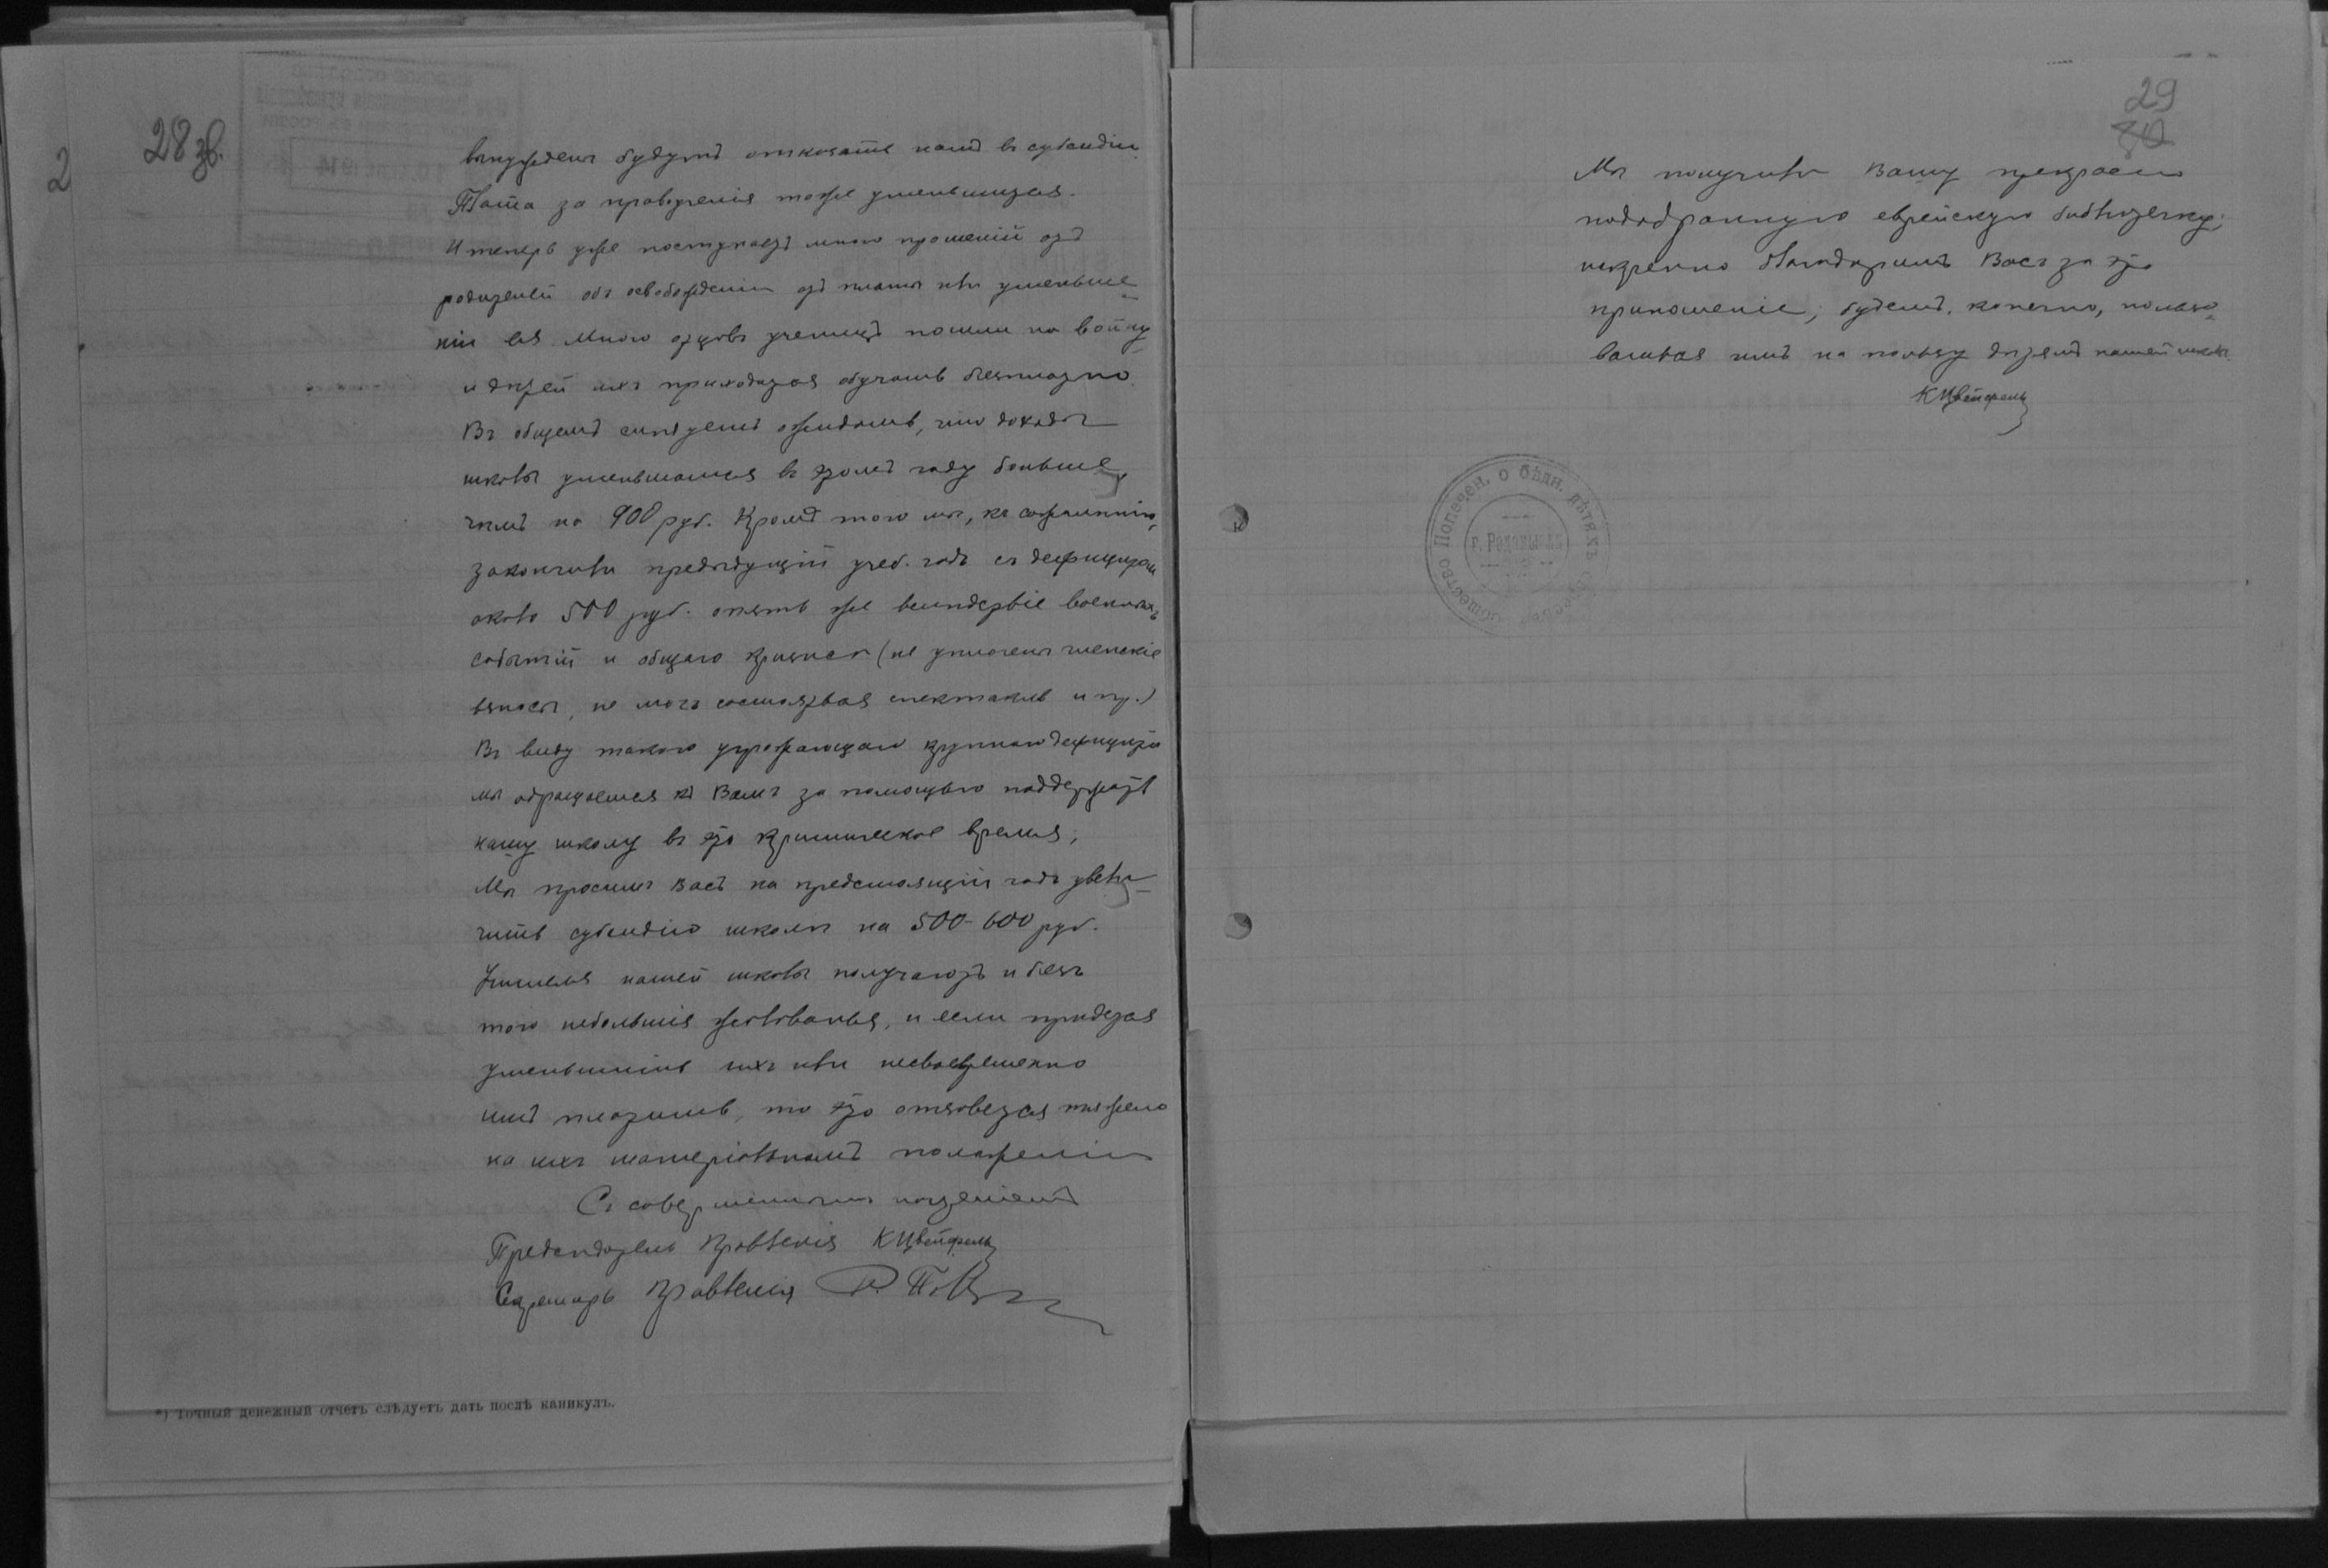 2
28 зв.
вынуждены будутъ отказать намъ въ субсидіи.
Плата за правоученія тоже уменьшится.
И теперь уже поступаетъ много прошеній отъ
родителей объ освобожденіи отъ платы или уменьше-
ніи ея. Много отцовъ ученицъ пошли на войну
и дѣтей ихъ приходится обучать безплатно.
Въ общемъ слѣдуетъ ожидать, что доходы
школы уменьшатся въ этомъ году больше,
чѣмъ на 900 руб. Кромѣ того мы, къ сожалѣнію,
закончили предыдущій учеб. годъ съ дефицитом
около 500 руб. опять же вслѣдствіе военныхъ
событій и общаго кризиса (не уплочены членскіе
взносы, не могъ состояться спектакль и пр.)
Въ виду такого угрожающаго крупнаго дефицита
мы обращаемся къ Вамъ за помощью поддержать
нашу школу въ это критическое время;
Мы просимъ Васъ на предстоящій годъ увели-
чить субсидію школы на 500-600 руб.
Учителя нашей школы получаютъ и безъ
того небольшія жалованья, и если придется
уменьшить ихъ или несвоевременно
имъ платить, то это отзовется тяжело
на ихъ матеріальномъ положеніи
Съ совершеннымъ почтеніемъ
Предсѣдатель Правленія К Цвейфель
Секретарь Правленія
*) Точный денежный отчетъ слѣдуетъ дать послѣ каникулъ.
29
Мы получили Вашу прекрасно
подобранную еврейскую библіотечку;
искренно благодаримъ Васъ за это
приношеніе; будемъ, конечно, пользо-
ваться имъ на пользу дѣтямъ нашей школы.
К Цвейфель
Общество Попечен. о бѣдн. дѣтяхъ
г. Радомысль